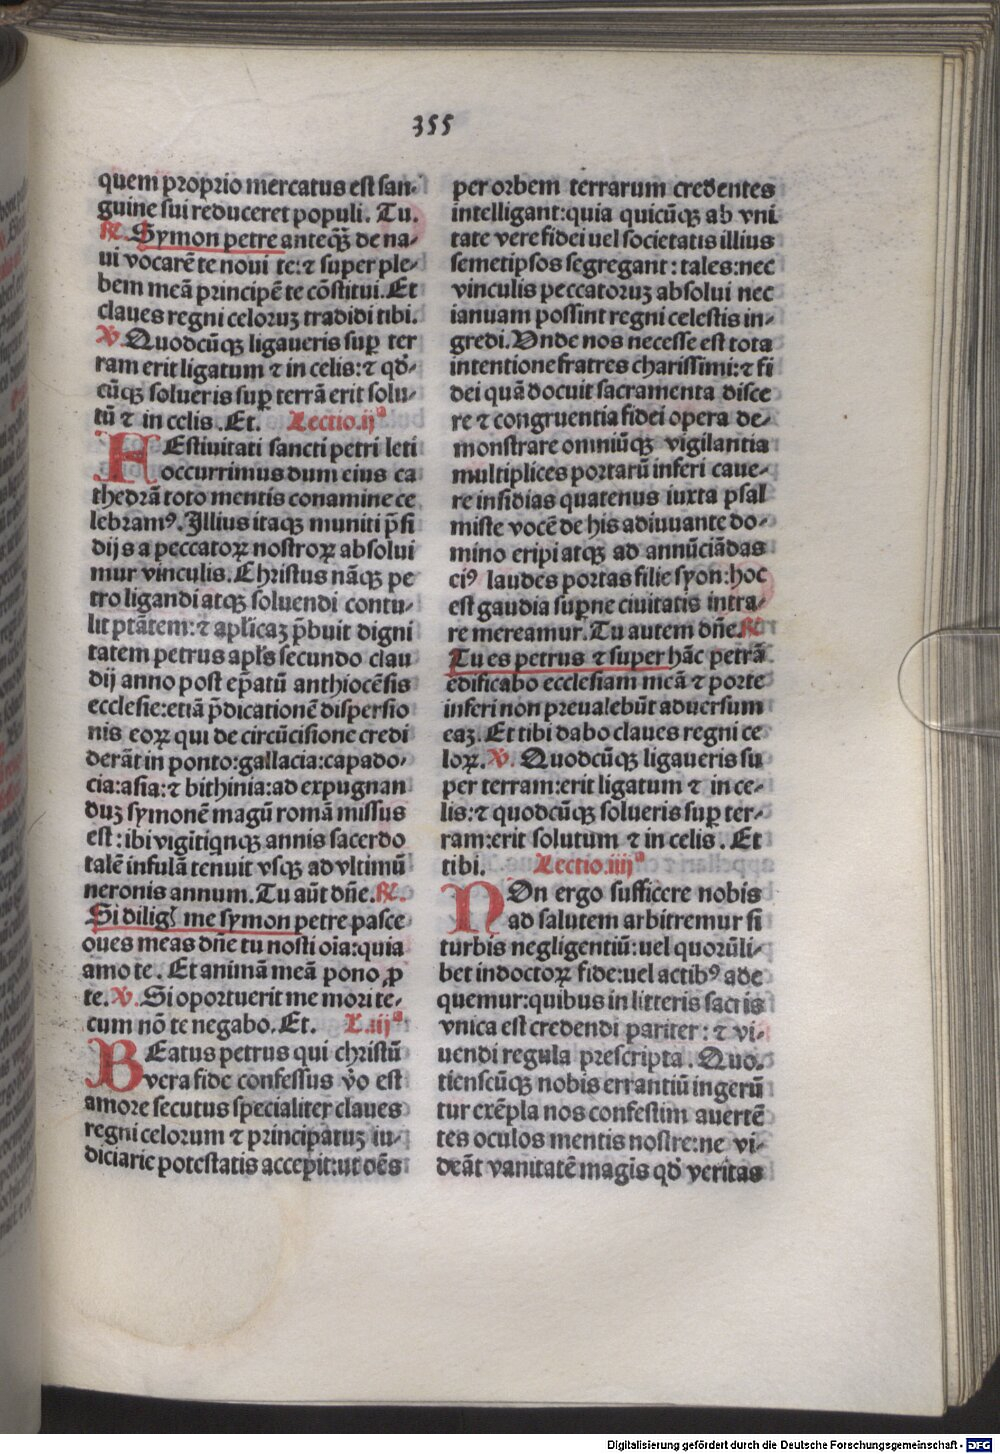 355
quem proprio mercatus est san-
guine sui reduceret populi. Tu.
℟. Symon petre anteq̄ȝ de na-
ui vocarē te noui te: ⁊ super ple-
bem meā principē te cōstitui. Et
claues regni celoruꝫ tradidi tibi.
℣. Quodcūqꝫ ligaueris suꝑ ter
ram erit ligatum ⁊ in celis: ⁊ qd̄-
cūqꝫ solueris suꝑ terrā erit solu-
tū ⁊ in celis. Et. Lectio.ijᵃ
FEstiuitati sancti petri leti
occurrimus dum eius ca
thedrā toto mentis conamine ce
lebramꝰ. Illius itaqꝫ muniti p̄si
dijs a peccatoꝝ nostroꝝ absolui
mur vinculis. Christus nāqꝫ pe
tro ligandi atqꝫ soluendi contu-
lit ptātem: ⁊ apl̓icaꝫ p̄buit digni
tatem petrus apl̓s secundo clau
dij anno post ep̄atū anthiocēsis
ecclesie: etiā p̄dicationē dispersio
nis eoꝝ qui de circūcisione credi
derāt in ponto: gallacia: capado-
cia: asia: ⁊ bithinia: ad expugnan
duꝫ symonē magū romā missus
est: ibi vigitiqnqꝫ annis sacerdo
talē infulā tenuit vsqꝫ ad vltimū
neronis annum. Tu aūt dn̄e. ℟.
Si dilig̓ me symon petre pasce
oues meas dn̄e tu nosti oīa: quia
amo te. Et animā meā pono ꝓ
te. ℣. Si oportuerit me mori te-
cum nō te negabo. Et. L.iijᵃ
BEatus petrus qui christū
vera fide confessus v̄o est
amore secutus specialiter claues
regni celorum ⁊ principatuꝫ iu-
diciarie potestatis accepit: ut oēs
per orbem terrarum credentes
intelligant: quia quicūqꝫ ab vni
tate vere fidei uel societatis illius
semetipsos segregant: tales: nec
vinculis peccatoruꝫ absolui nec
ianuam possint regni celestis in-
gredi. Vnde nos necesse est tota
intentione fratres charissimi: ⁊ fi
dei quā docuit sacramenta disce
re ⁊ congruentia fidei opera de-
monstrare omniūqꝫ vigilantia
multiplices portarū inferi caue-
re insidias quatenus iuxta psal
miste vocē de his adiuuante do-
mino eripi atqꝫ ad annūciādas
eiꝰ laudes portas filie syon: hoc
est gaudia suꝑne ciuitatis intra-
re mereamur. Tu autem dn̄e. ℟.
Tu es petrus ⁊ super hāc petrā
edificabo ecclesiam meā ⁊ porte
inferi non preualebūt aduersum
eaꝫ. Et tibi dabo claues regni ce
loꝝ. ℣. Quodcūqꝫ ligaueris su
per terram: erit ligatum ⁊ in ce-
lis: ⁊ quodcūqꝫ solueris suꝑ ter-
ram: erit solutum ⁊ in celis. Et
tibi. Lectio.iiijᵃ
NOn ergo sufficere nobis
ad salutem arbitremur si
turbis negligentiū: uel quorūli-
bet indoctoꝝ fide: uel actibꝰ ade
quemur: quibus in litteris sacris
vnica est credendi pariter: ⁊ vi-
uendi regula prescripta. Quo-
tienscūqꝫ nobis errantiū ingerū
tur exēpla nos confestim auertē
tes oculos mentis nostre: ne vi-
deāt vanitatē magis qd̓ veritas
Digitalisierung gefördert durch die Deutsche Forschungsgemeinschaft - DFG